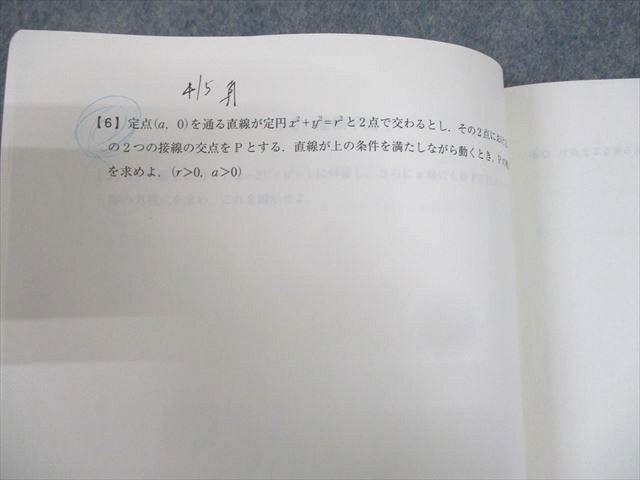 4/5
【6】定点(a, 0)を通る直線が定円x²+y²=r²と2点で交わるとし，その2点におけ
の2つの接線の交点をPとする．直線が上の条件を満たしながら動くとき，Pの
を求めよ．(r>0, a>0)